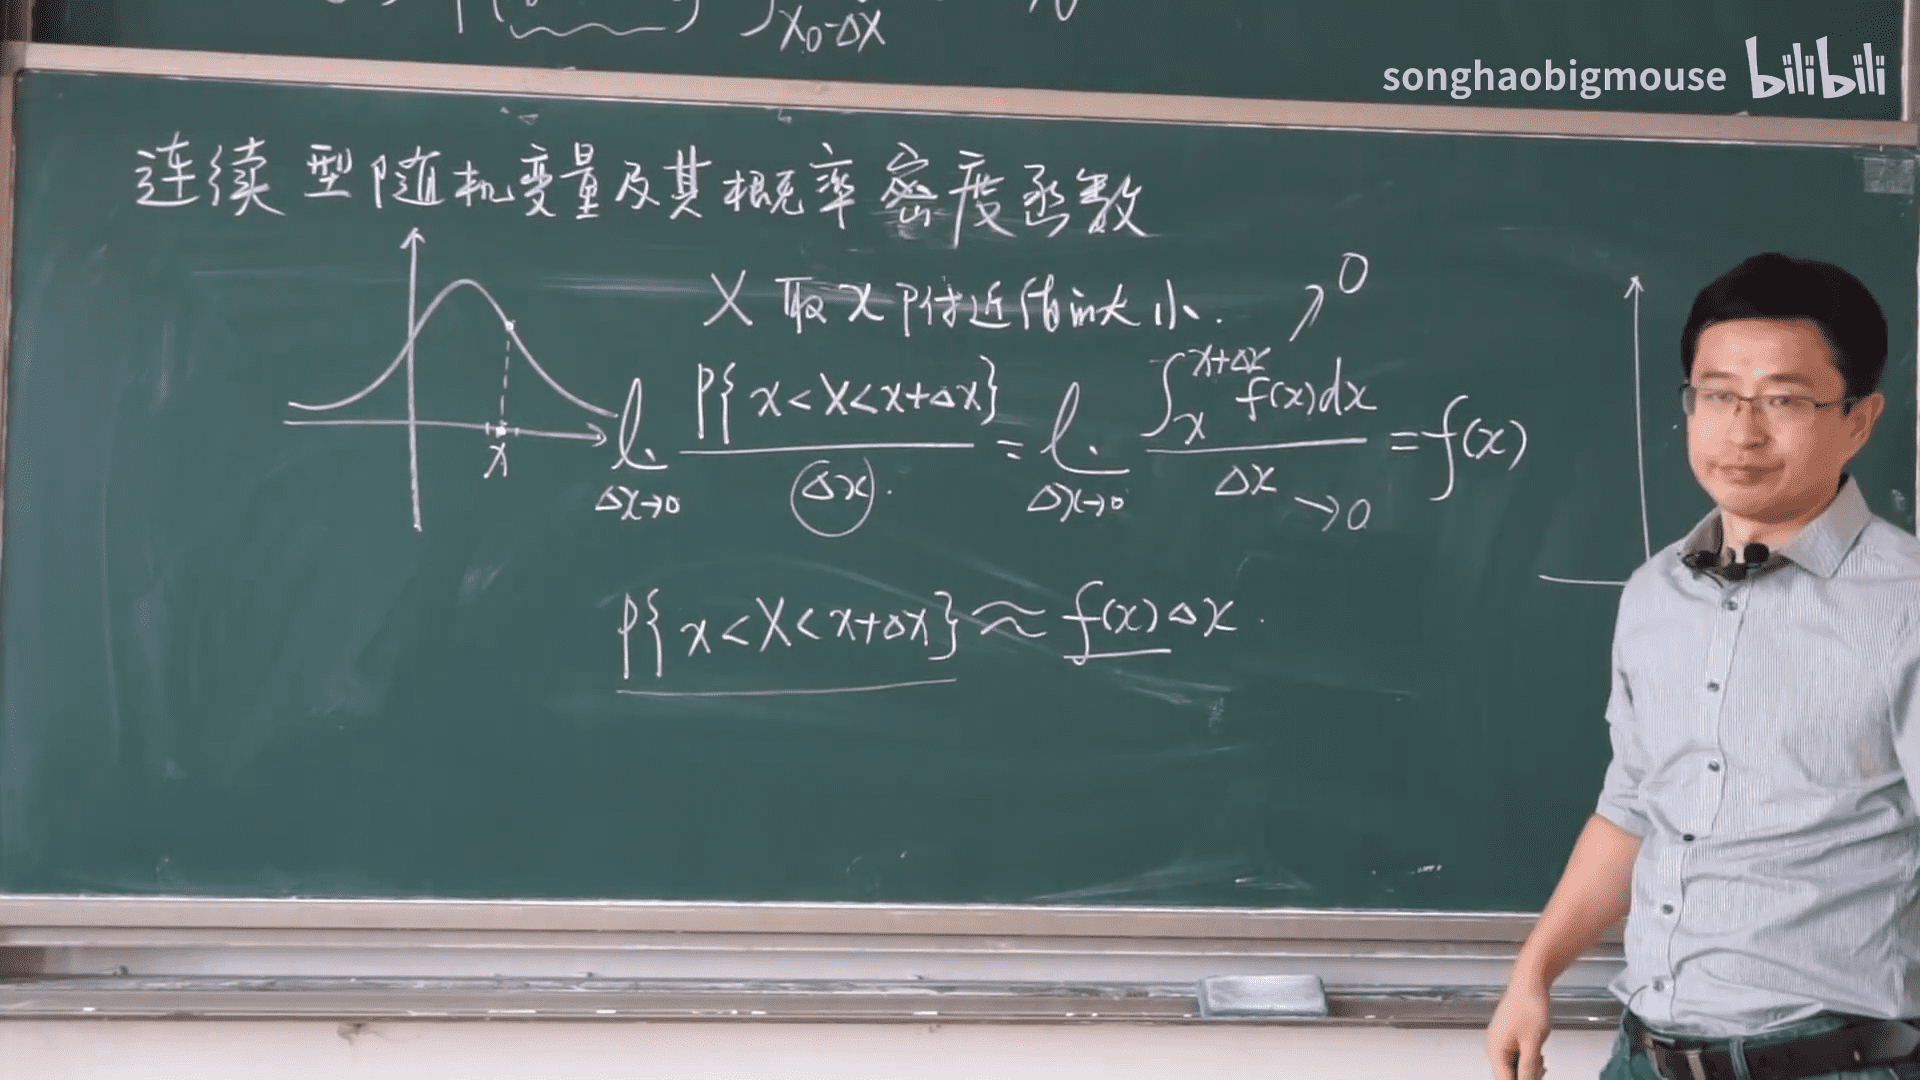 X₀-ΔX
songhaobigmouse bilibili
连续型随机变量及其概率密度函数
X 取 x 附近值的大小.
lim Δx→0 P{x<X<x+Δx} / Δx = lim Δx→0 ∫ₓ^(x+Δx) f(x)dx / Δx = f(x)
→0
→0
x
P{x<X<x+Δx} ≈ f(x)Δx.